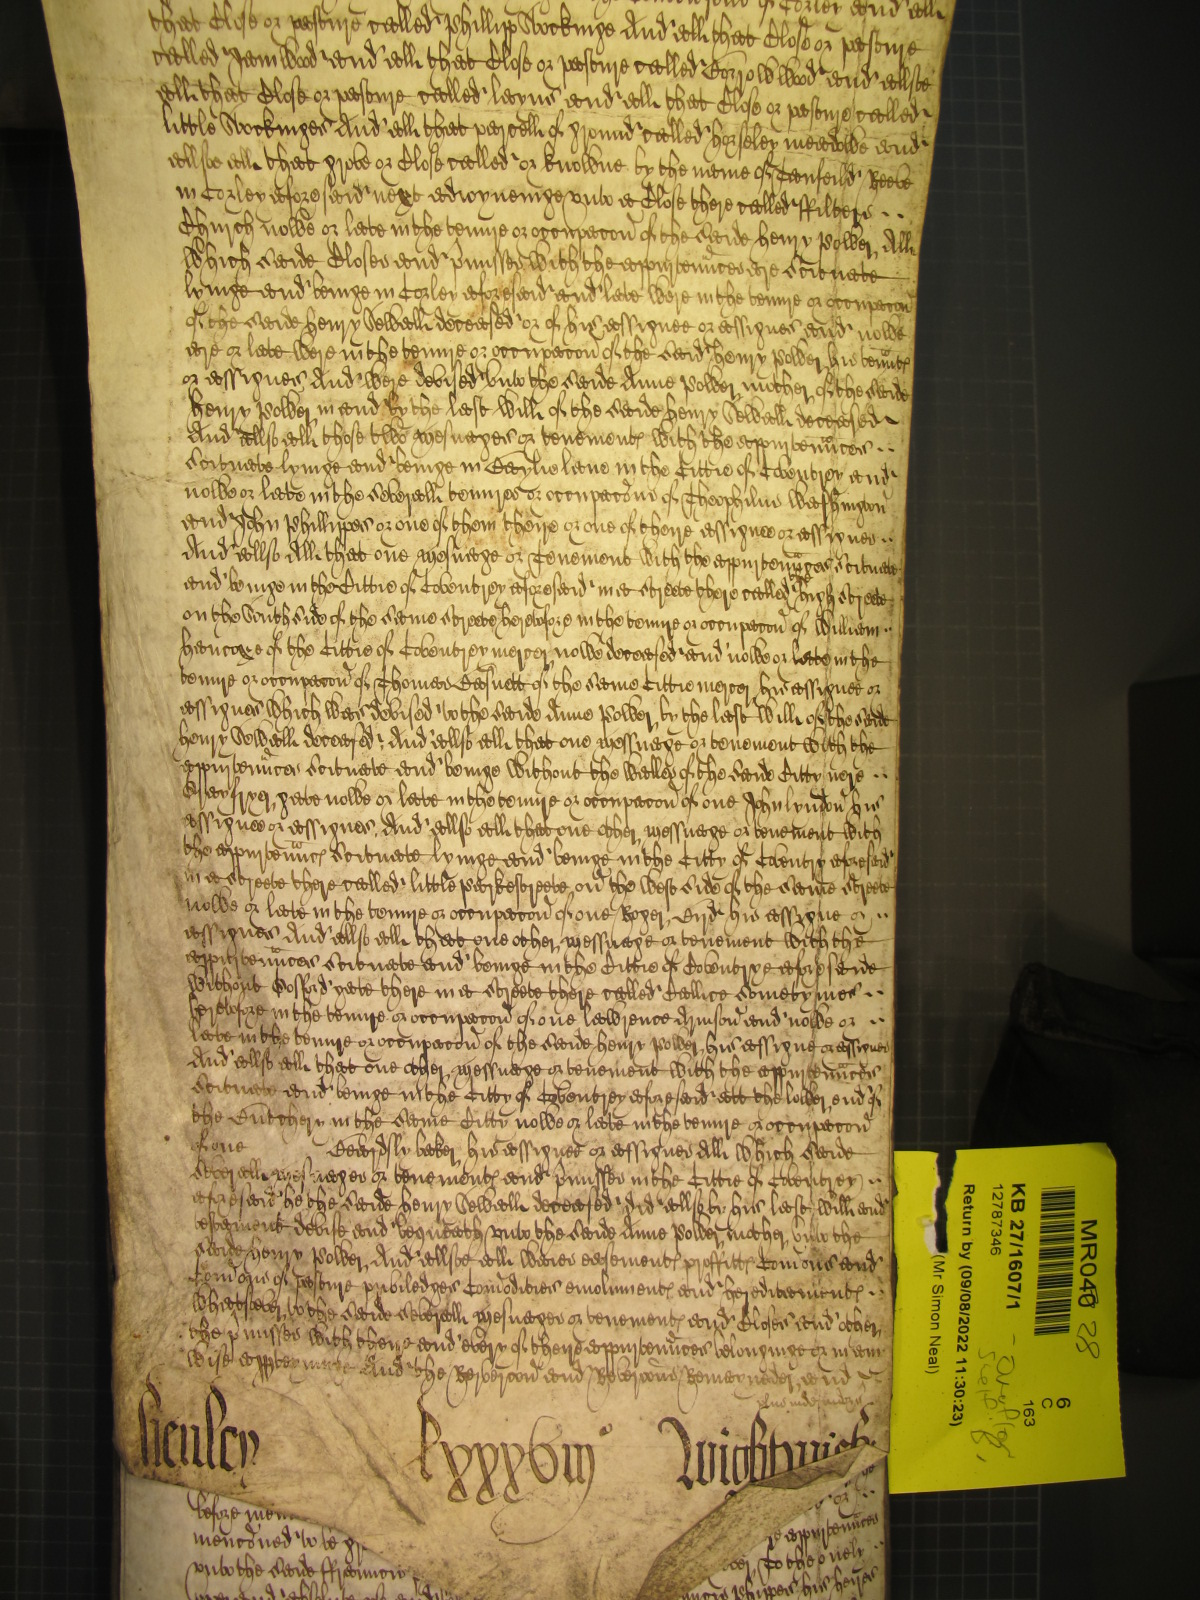 that Close or pasture called Phillipp Stockinge And all that Close or pasture
called Hamwood and all that Close or pasture called Corrowwood and allsoe
all that Close or pasture called layns and all that Close or pasture called
little Stockinges And all that parcell of ground called horseley meadowe and
allsoe all that grove or Close called or knowne by the name of Tanfeild Reede
in Corley aforesaid next adioyneinge vnto a Close there called ffilbers
Church nowe or late in the tenure or occupacon of the Saide henry Power, All
Which Saide Closes and pmisses With the appurtenances are Scituate
lyinge and beinge in Corley aforesaid and late Were in the tenure or occupacon
of the Saide henry Sewall deceased or of his assignee or assignes and nowe
are or late were in the tenure or occupacon of the Said henry Power his tenants
or assignes And Were devised vnto the Saide Anne Power, mother of the Saide
henry Power in and by the last Will of the Saide henry Sewall deceased
And allso all those two mesuages or tenements With the appurtenances
Scituate lyinge and beinge in Baylie lane in the Cittie of Coventrey and
nowe or late in the Severall tenures or occupacons of Theophilus Washington
and John Phillippes or one of them theire or one of theire assignee or assignes
And allso All that one mesuage or Tenement With the appurtenances Scituate
and beinge in the Cittie of Coventrey aforesaid in a Streete there called high Streete
on the South Side of the Same Streete heretofore in the tenure or occupacon of William
hancoxe of the Cittie of Coventrey mercer nowe deceased and nowe or late in the
tenure or occupacon of Thomas Basnett of the Same Cittie mercer, his assignee or
assignes Which Was devised to the Saide Anne Power, by the last Will of the Saide
henry Sewall deceased And allso all that one messuage or tenement With the
appurtenances Scituate and beinge Without the Walles of the Saide Citty nere
Gray fryer gate nowe or late in the tenure or occupacon of one John lyndon his
assignee or assignes, And allso all that one other messuage or tenement With
the appurtenances Scituate lyinge and beinge in the Citty of Coventry aforesaid
in a Streete there called little parkestreete on the West Side of the Same Streete
nowe or late in the tenure or occupacon of one Roger Bird his assigne or
assignes And allso all that one other messuage or tenement With the
appurtenances Scituate and beinge in the Cittie of Coventrye aforesaide
Without Gosford gate there in a Streete there called Callice Sometymes
heretofore in the tenure or occupacon of one lawrence Armson and nowe or
late in the tenure or occupacon of the Saide henry Power, his assigne or assignes
And allso all that one other, messuage or tenement With the appurtenances
Scituate and beinge in the Citty of Coventrey aforesaid att the lower end of
the Butchery in the Same Citty nowe or late in the tenure or occupacon
of one Beardsly baker, his assignee or assignes All Which Saide
Severall mesuages or tenements and pmisses in the Cittie of Coventrey
aforesaid he the Saide henry Sewall deceased did allso by his last Will and
testament devise and bequeath vnto the Saide Anne Power, mother, vnto the
Saide henry Power, And allsoe all Waies easements proffitts Comons and
Comons of pasture priviledges Comodities emoluments and hereditaments
Whatsoever to the Saide Severall mesuages or tenements and Closes and other
the pmisses With theire and every of theire appurtenances belonginge or in anie
Wise apperteyninge And the Revercon and Revercons Remaynder and
lxxxviijo
Wightwick
before men
menconed to be gr
vnto the Saide ffrancis
appurtenances
To the onely
his heyres
MR040
28
KB 27/1607/1
12787346
Return by (09/08/2022 11:30:23)
(Mr Simon Neal)
6
C
163